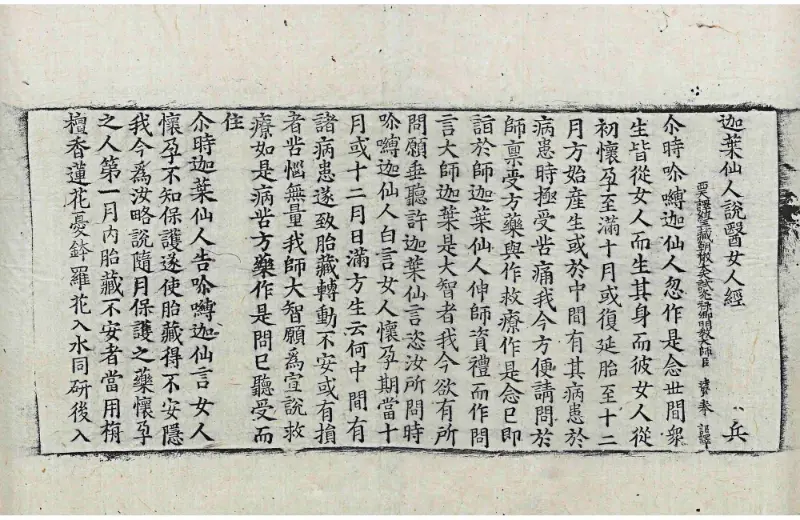 迦葉仙人說醫女人經 兵
西天譯經三藏朝散大夫試光祿卿明教大師臣 法賢奉 詔譯
尒時嚩迦仙人忽作是念世間衆
生皆從女人而生其身而彼女人從
初懷孕至滿十月或復延胎至十二
月方始産生或於中間有其病患於
病患時極受苦痛我今方便請問於
師禀受方藥與作救療作是念已即
詣於師迦葉仙人伸師資禮而作問
言大師迦葉是大智者我今欲有所
問願垂聽許迦葉仙言恣汝所問時
嚩迦仙人白言女人懷孕期當十
月或十二月日滿方生云何中間有
諸病患遂致胎藏轉動不安或有損
者苦惱無量我師大智願爲宣說救
療如是病苦方藥作是問已聽受而
住
尒時迦葉仙人告嚩迦仙言女人
懷孕不知保護遂使胎藏得不安隱
我今爲汝略說隨月保護之藥懷孕
之人第一月内胎藏不安者當用栴
檀香蓮花憂鉢羅花入水同研後入